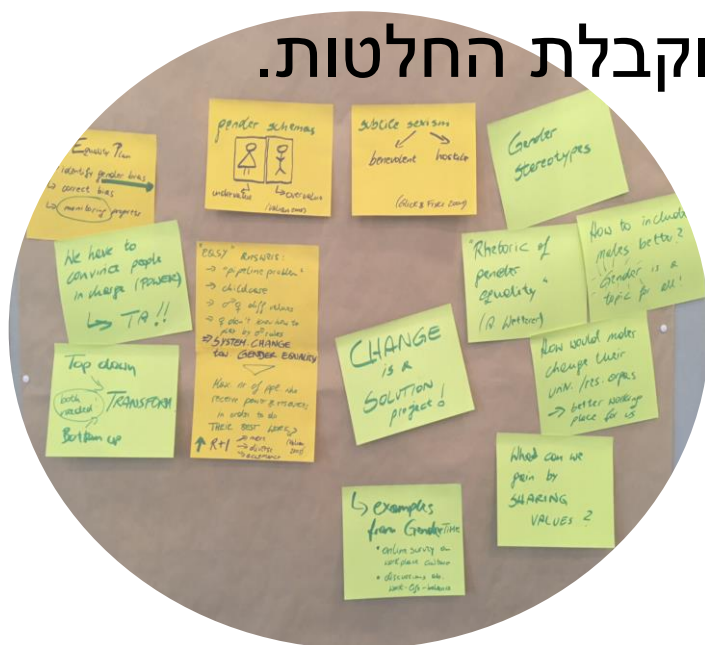 וקבלת החלטות.
Equality Plan
identify gender bias
↳ correct bias
↳ monitoring progress
gender schemas
undervalue
overvalue
subtile sexism
benevolent
hostile
Gender
Stereotypes
We have to
convince people
in charge (POWER)
↳ TA!!
"EASY" ANSWERS:
→ "pipeline problem"
→ childcare
→ ♂♀ diff values
→ ♀ don't know how to
play by ♂ rules
⇒ SYSTEM CHANGE
GENDER EQUALITY
receive power & resources
in order to do
THEIR BEST WORK?
↑ R+I
→ more
→ diverse
"Rhetoric of
gender
equality"
How to include
males better?
Gender is a
topic for all!
Top down
both
needed
TRANSFORM
Bottom up
CHANGE
is a
SOLUTION
project!
How would males
change their
uni./res. orgas
→ better working
place for us
What can we
gain by
SHARING
VALUES?
↳ examples
from GenderTIME
• online survey on
workplace culture
• discussions
work-life-balance